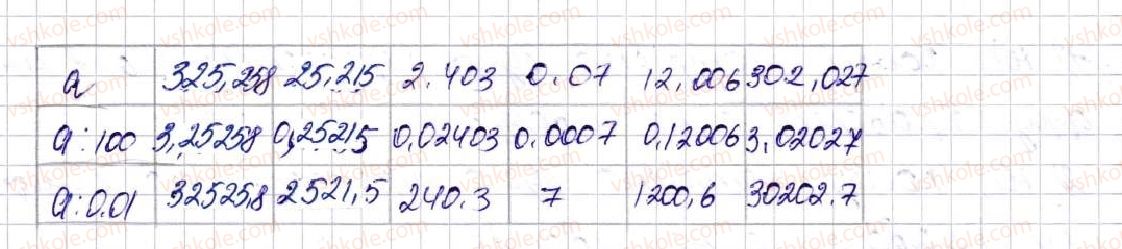 a 325,258 25,215 2.403 0.07 12,006 302,027
a:100 3,25258 0,25215 0,02403 0.0007 0,12006 3,02027
a:0.01 32525,8 2521,5 240.3 7 1200,6 30202.7